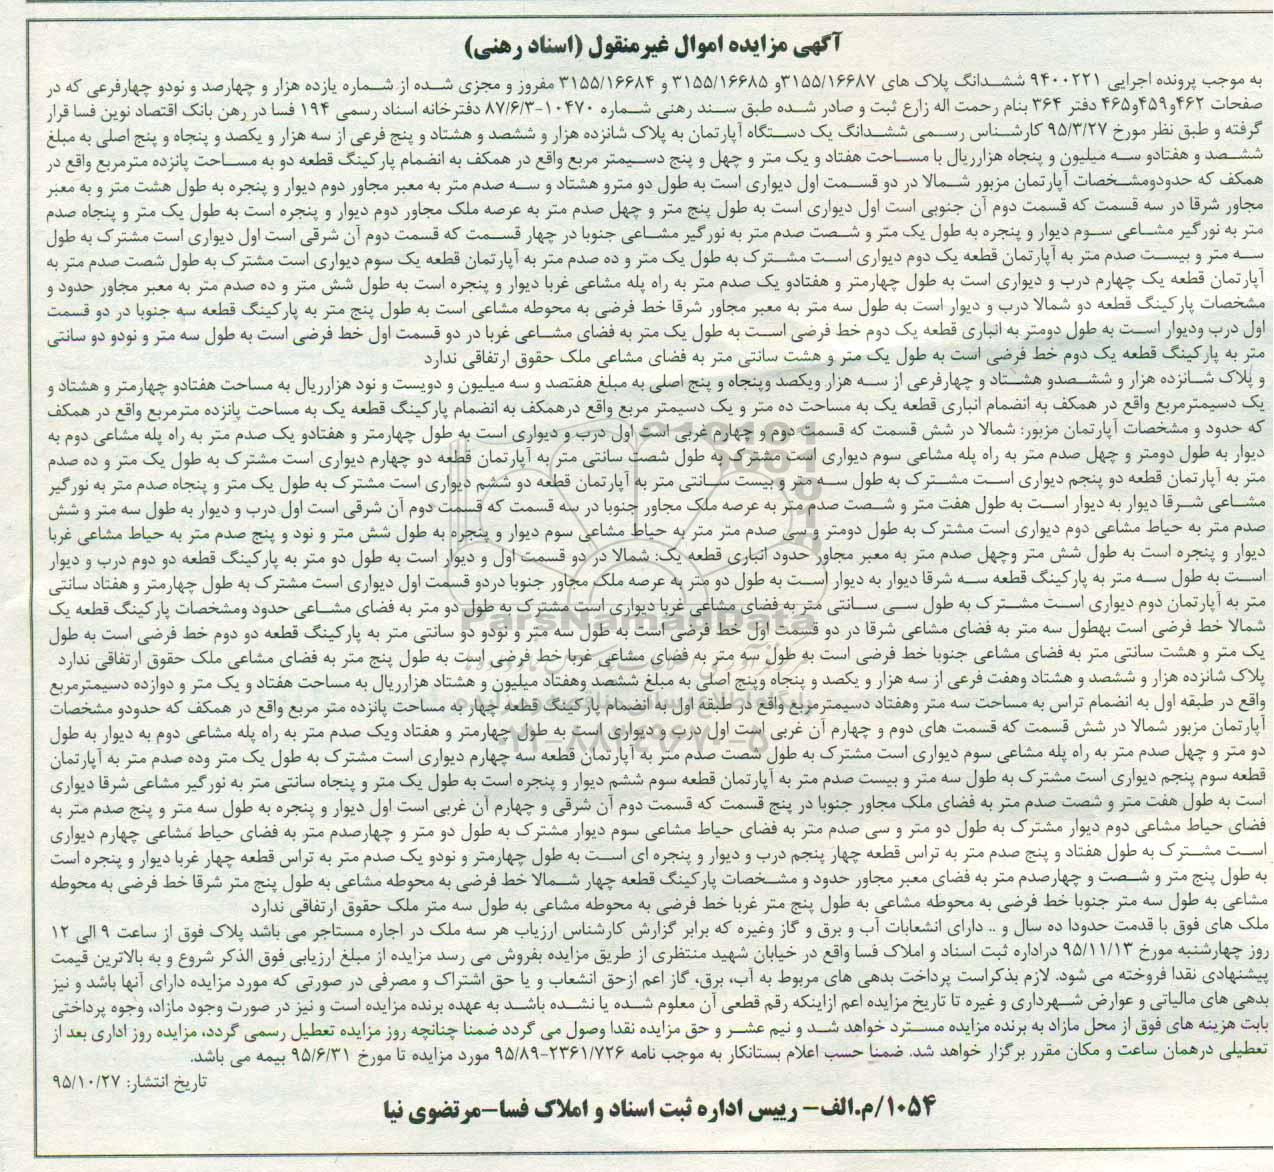 آگهی مزایده اموال غیرمنقول (اسناد رهنی)
به موجب پرونده اجرایی ۹۴۰۰۲۲۱ ششدانگ پلاک های ۳۱۵۵/۱۶۶۸۷و ۳۱۵۵/۱۶۶۸۵ و ۳۱۵۵/۱۶۶۸۴ مفروز و مجزی شده از شماره یازده هزار و چهارصد و نودو چهارفرعی که در
صفحات ۴۶۲و۴۵۹و۴۶۵ دفتر ۳۶۴ بنام رحمت اله زارع ثبت و صادر شده طبق سند رهنی شماره ۱۰۴۷۰-۸۷/۶/۳ دفترخانه اسناد رسمی ۱۹۴ فسا در رهن بانک اقتصاد نوین فسا قرار
گرفته و طبق نظر مورخ ۹۵/۳/۲۷ کارشناس رسمی ششدانگ یک دستگاه آپارتمان به پلاک شانزده هزار و ششصد و هشتاد و پنج فرعی از سه هزار و یکصد و پنجاه و پنج اصلی به مبلغ
ششصد و هفتادو سه میلیون و پنجاه هزارریال با مساحت هفتاد و یک متر و چهل و پنج دسیمتر مربع واقع در همکف به انضمام پارکینگ قطعه دو به مساحت پانزده مترمربع واقع در
همکف که حدودومشخصات آپارتمان مزبور شمالا در دو قسمت اول دیواری است به طول دو مترو هشتاد و سه صدم متر به معبر مجاور دوم دیوار و پنجره به طول هشت متر و به معبر
مجاور شرقا در سه قسمت که قسمت دوم آن جنوبی است اول دیواری است به طول پنج متر و چهل صدم متر به عرصه ملک مجاور دوم دیوار و پنجره است به طول یک متر و پنجاه صدم
متر به نورگیر مشاعی سوم دیوار و پنجره به طول یک متر و شصت صدم متر به نورگیر مشاعی جنوبا در چهار قسمت که قسمت دوم آن شرقی است اول دیواری است مشترک به طول
سه متر و بیست صدم متر به آپارتمان قطعه یک دوم دیواری است مشترک به طول یک متر و ده صدم متر به آپارتمان قطعه یک سوم دیواری است مشترک به طول شصت صدم متر به
آپارتمان قطعه یک چهارم درب و دیواری است به طول چهارمتر و هفتادو یک صدم متر به راه پله مشاعی غربا دیوار و پنجره است به طول شش متر و ده صدم متر به معبر مجاور حدود و
مشخصات پارکینگ قطعه دو شمالا درب و دیوار است به طول سه متر به معبر مجاور شرقا خط فرضی به محوطه مشاعی است به طول پنج متر به پارکینگ قطعه سه جنوبا در دو قسمت
اول درب ودیوار است به طول دومتر به انباری قطعه یک دوم خط فرضی است به طول یک متر به فضای مشاعی غربا در دو قسمت اول خط فرضی است به طول سه متر و نودو دو سانتی
متر به پارکینگ قطعه یک دوم خط فرضی است به طول یک متر و هشت سانتی متر به فضای مشاعی ملک حقوق ارتفاقی ندارد
و پلاک شانزده هزار و ششصدو هشتاد و چهارفرعی از سه هزار ویکصد وپنجاه و پنج اصلی به مبلغ هفتصد و سه میلیون و دویست و نود هزارریال به مساحت هفتادو چهارمتر و هشتاد و
یک دسیمترمربع واقع در همکف به انضمام انباری قطعه یک به مساحت ده متر و یک دسیمتر مربع واقع درهمکف به انضمام پارکینگ قطعه یک به مساحت پانزده مترمربع واقع در همکف
که حدود و مشخصات آپارتمان مزبور: شمالا در شش قسمت که قسمت دوم و چهارم غربی است اول درب و دیواری است به طول چهارمتر و هفتادو یک صدم متر به راه پله مشاعی دوم به
دیوار به طول دومتر و چهل صدم متر به راه پله مشاعی سوم دیواری است مشترک به طول شصت سانتی متر به آپارتمان قطعه دو چهارم دیواری است مشترک به طول یک متر و ده صدم
متر به آپارتمان قطعه دو پنجم دیواری است مشترک به طول سه متر و بیست سانتی متر به آپارتمان قطعه دو ششم دیواری است مشترک به طول یک متر و پنجاه صدم متر به نورگیر
مشاعی شرقا دیوار به دیوار است به طول هفت متر و شصت صدم متر به عرصه ملک مجاور جنوبا در سه قسمت که قسمت دوم آن شرقی است اول درب و دیوار به طول سه متر و شش
صدم متر به حیاط مشاعی دوم دیواری است مشترک به طول دومتر و سی صدم متر متر به حیاط مشاعی سوم دیوار و پنجره به طول شش متر و نود و پنج صدم متر به حیاط مشاعی غربا
دیوار و پنجره است به طول شش متر وچهل صدم متر به معبر مجاور حدود انباری قطعه یک: شمالا در دو قسمت اول و دیوار است به طول دو متر به پارکینگ قطعه دو دوم درب و دیوار
است به طول سه متر به پارکینگ قطعه سه شرقا دیوار به دیوار است به طول دو متر به عرصه ملک مجاور جنوبا دردو قسمت اول دیواری است مشترک به طول چهارمتر و هفتاد سانتی
متر به آپارتمان دوم دیواری است مشترک به طول سی سانتی متر به فضای مشاعی غربا دیواری است مشترک به طول دو متر به فضای مشاعی حدود ومشخصات پارکینگ قطعه یک
شمالا خط فرضی است بهطول سه متر به فضای مشاعی شرقا در دو قسمت اول خط فرضی است به طول سه متر و نودو دو سانتی متر به پارکینگ قطعه دو دوم خط فرضی است به طول
یک متر و هشت سانتی متر به فضای مشاعی جنوبا خط فرضی است به طول سه متر به فضای مشاعی غربا خط فرضی است به طول پنج متر به فضای مشاعی ملک حقوق ارتفاقی ندارد
پلاک شانزده هزار و ششصد و هشتاد وهفت فرعی از سه هزار و یکصد و پنجاه وپنج اصلی به مبلغ ششصد وهفتاد میلیون و هشتاد هزارریال به مساحت هفتاد و یک متر و دوازده دسیمترمربع
واقع در طبقه اول به انضمام تراس به مساحت سه متر وهفتاد دسیمترمربع واقع در طبقه اول به انضمام پارکینگ قطعه چهار به مساحت پانزده متر مربع واقع در همکف که حدودو مشخصات
آپارتمان مزبور شمالا در شش قسمت که قسمت های دوم و چهارم آن غربی است اول درب و دیواری است به طول چهارمتر و هفتاد ویک صدم متر به راه پله مشاعی دوم به دیوار به طول
دو متر و چهل صدم متر به راه پله مشاعی سوم دیواری است مشترک به طول شصت صدم متر به آپارتمان قطعه سه چهارم دیواری است مشترک به طول یک متر وده صدم متر به آپارتمان
قطعه سوم پنجم دیواری است مشترک به طول سه متر و بیست صدم متر به آپارتمان قطعه سوم ششم دیوار و پنجره است به طول یک متر و پنجاه سانتی متر به نورگیر مشاعی شرقا دیواری
است به طول هفت متر و شصت صدم متر به فضای ملک مجاور جنوبا در پنج قسمت که قسمت دوم آن شرقی و چهارم آن غربی است اول دیوار و پنجره به طول سه متر و پنج صدم متر به
فضای حیاط مشاعی دوم دیوار مشترک به طول دو متر و سی صدم متر به فضای حیاط مشاعی سوم دیوار مشترک به طول دو متر و چهارصدم متر به فضای حیاط مشاعی چهارم دیواری
است مشترک به طول هفتاد و پنج صدم متر به تراس قطعه چهار پنجم درب و دیوار و پنجره ای است به طول چهارمتر و نودو یک صدم متر به تراس قطعه چهار غربا دیوار و پنجره است
به طول پنج متر و شصت و چهارصدم متر به فضای معبر مجاور حدود و مشخصات پارکینگ قطعه چهار شمالا خط فرضی به محوطه مشاعی به طول پنج متر شرقا خط فرضی به محوطه
مشاعی به طول سه متر جنوبا خط فرضی به محوطه مشاعی به طول پنج متر غربا خط فرضی به محوطه مشاعی به طول سه متر ملک حقوق ارتفاقی ندارد
ملک های فوق با قدمت حدودا ده سال و .. دارای انشعابات آب و برق و گاز وغیره که برابر گزارش کارشناس ارزیاب هر سه ملک در اجاره مستاجر می باشد پلاک فوق از ساعت ۹ الی ۱۲
روز چهارشنبه مورخ ۹۵/۱۱/۱۳ دراداره ثبت اسناد و املاک فسا واقع در خیابان شهید منتظری از طریق مزایده بفروش می رسد مزایده از مبلغ ارزیابی فوق الذکر شروع و به بالاترین قیمت
پیشنهادی نقدا فروخته می شود. لازم بذکراست پرداخت بدهی های مربوط به آب، برق، گاز اعم ازحق انشعاب و یا حق اشتراک و مصرفی در صورتی که مورد مزایده دارای آنها باشد و نیز
بدهی های مالیاتی و عوارض شهرداری و غیره تا تاریخ مزایده اعم ازاینکه رقم قطعی آن معلوم شده یا نشده باشد به عهده برنده مزایده است و نیز در صورت وجود مازاد، وجوه پرداختی
بابت هزینه های فوق از محل مازاد به برنده مزایده مسترد خواهد شد و نیم عشر و حق مزایده نقدا وصول می گردد ضمنا چنانچه روز مزایده تعطیل رسمی گردد، مزایده روز اداری بعد از
تعطیلی درهمان ساعت و مکان مقرر برگزار خواهد شد. ضمنا حسب اعلام بستانکار به موجب نامه ۲۳۶۱/۷۲۶-۹۵/۸۹ مورد مزایده تا مورخ ۹۵/۶/۳۱ بیمه می باشد.
تاریخ انتشار: ۹۵/۱۰/۲۷
۱۰۵۴/م.الف- رییس اداره ثبت اسناد و املاک فسا-مرتضوی نیا
ParsNamadData
۰۲۱-۸۸۳۴۹۶۷۰-۵